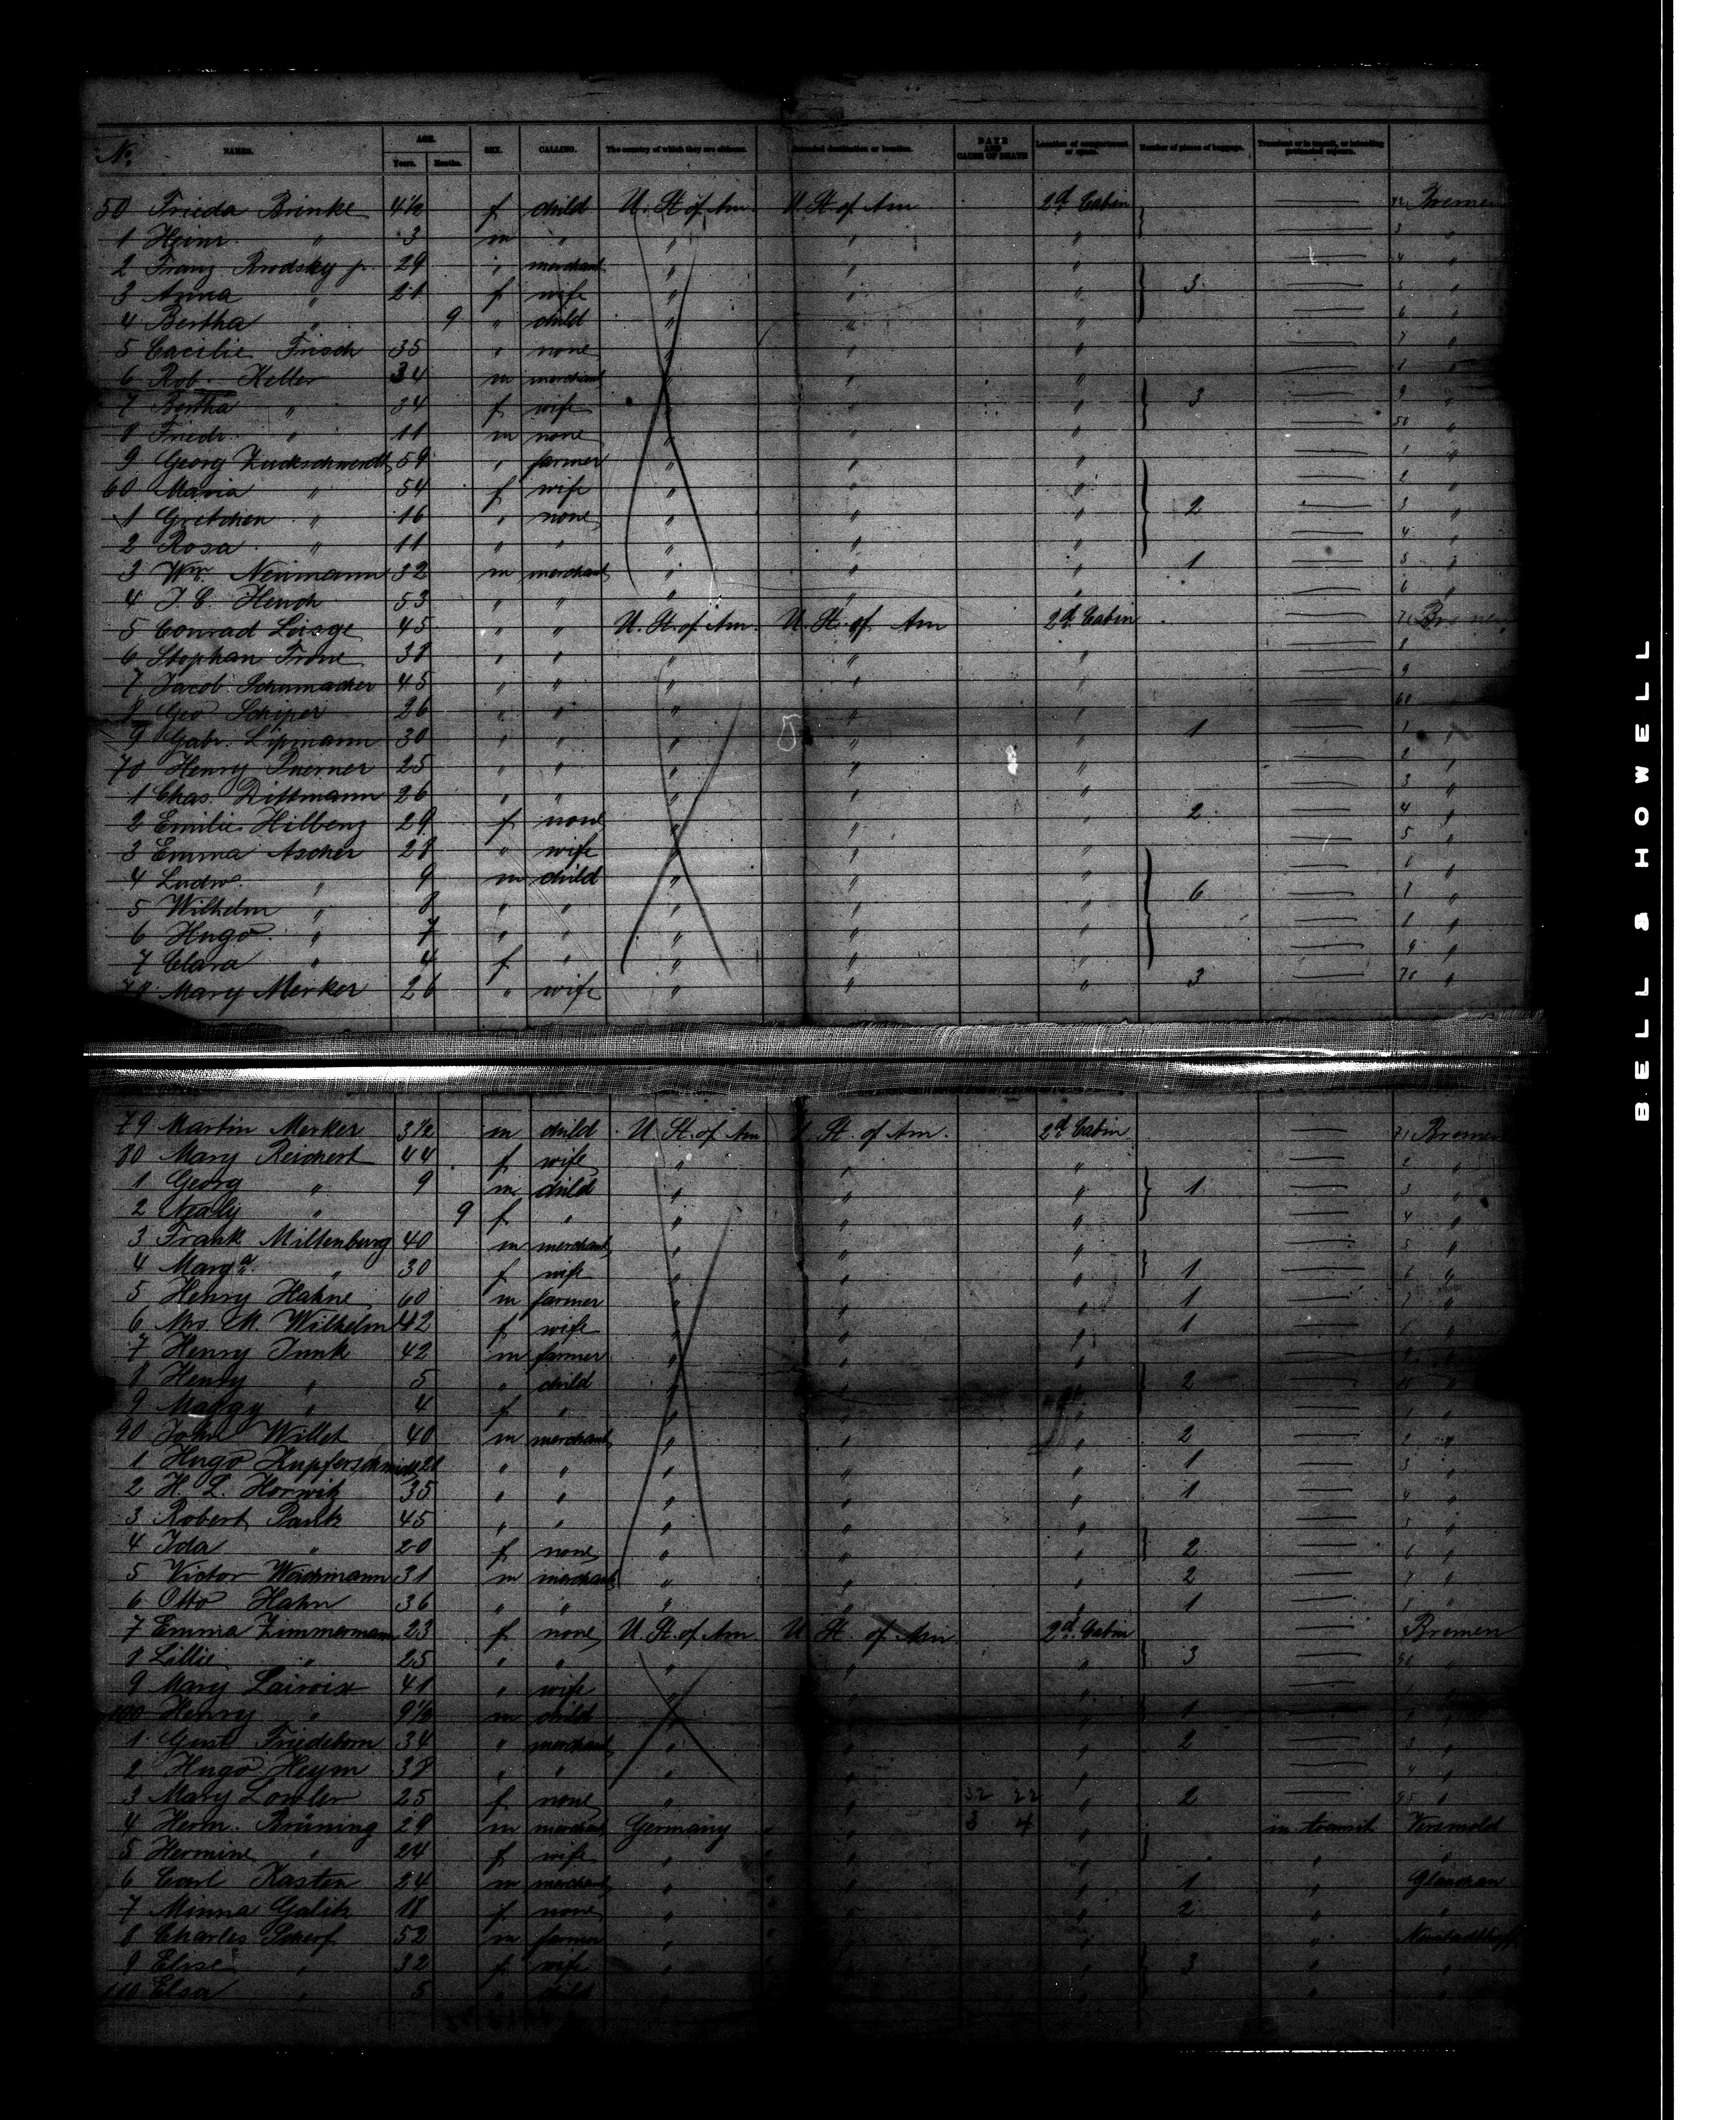 No. NAMES. AGE. Years. Months. SEX. CALLING. The country of which they are citizens. Intended destination or location. DATE AND CAUSE OF DEATH Location of compartment or space. Number of pieces of baggage. Transient or in transit, or intending protracted sojourn.
50 Frieda Brinke 4½ f child U. St. of Am. U. St. of Am 2d Cabin Bremen
1 Heinr. " 3 m " " " "
2 Franz Brodsky jr. 29 " merchant " " "
3 Anna " 21 f wife " " " 3
4 Bertha " 9 " child " " "
5 Cacilie Frisch 35 " none " " "
6 Rob. Keller 34 m merchant " " "
7 Bertha " 34 f wife " " " 3
8 Friedr. " 11 m none " " "
9 Georg Zuckschwerdt 59 " farmer " " "
60 Maria " 54 f wife " " "
1 Gretchen " 16 " none " " " 2
2 Rosa " 11 " " " " "
3 Wm. Neumann 32 m merchant " " " 1
4 J. C. 53 " " " " "
5 Conrad 45 " " U. St. of Am. U. St. of Am 2d Cabin Bremen
6 Stephan 38 " " " " "
7 Jacob Schumacher 45 " " " " "
8 Geo 26 " " " " "
9 Gabr. Lipmann 30 " " " " " 1
70 Henry 25 " " " " "
1 Chas. Dittmann 26 " " " " "
2 Emilie Hilbenz 29 f none " " " 2
3 Emma Ascher 28 " wife " " "
4 Ludw. " 9 m child " " "
5 Wilhelm " 8 " " " " " 6
6 Hugo " 7 " " " " "
7 Clara " 4 f " " " "
78 Mary Merker 26 " wife " " " 3
79 Martin Merker 3½ m child U. St. of Am U. St. of Am. 2d Cabin Bremen
80 Mary Reichert 44 f wife " " "
1 Georg " 9 m child " " " 1
2 " 9 f " " " "
3 Frank Miltenburg 40 m merchant " " "
4 Marga. " 30 f wife " " " 1
5 Henry Hahne 60 m farmer " " " 1
6 Mrs. M. Wilhelm 42 f wife " " " 1
7 Henry Junk 42 m farmer " " "
8 Henry " 5 " child " " " 2
9 Maggy " 4 f " " " "
90 John Willet 40 m merchant " " " 2
1 Hugo Kupferschmidt 21 " " " " " 1
2 H. L. Horwitz 35 " " " " " 1
3 Robert 45 " " " " "
4 Ida " 20 f none " " " 2
5 Victor Weichmann 31 m merchant " " " 2
6 Otto Hahn 36 " " " " " 1
7 Emma Zimmermann 23 f none U. St. of Am. U St. of Am. 2d Cabin Bremen
8 Lillie " 25 " " " " " 3
9 Mary 41 " wife " " "
100 Henry " 9½ m child " " " 1
1 Gust Friedeborn 34 " merchant " " " 2
2 Hugo Heym 38 " " " " "
3 Mary 25 f none " " " 2
4 Herm. Brüning 29 m merchant Germany " " in transit Versmold
5 Hermine " 24 f wife " " " " "
6 Carl Kasten 24 m merchant " " " 1 " Glauchau
7 Minna 18 f none " " " 2 " "
8 Charles Scherf 52 m farmer " " " "
9 Elise " 32 f wife " " " 3 " "
110 Elsa " 5 " child " " " " "
BELL & HOWELL